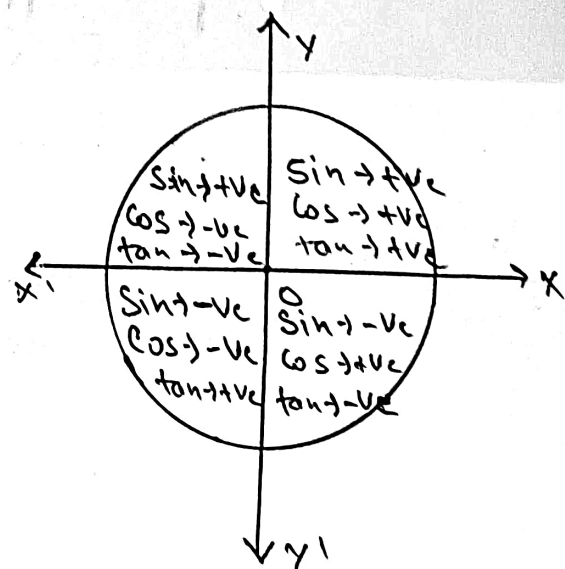 Y
Sin→+ve
Cos→-ve
tan→-ve
Sin→+ve
Cos→+ve
tan→+ve
X'
X
O
Sin→-ve
Cos→-ve
tan→+ve
Sin→-ve
Cos→+ve
tan→-ve
Y'